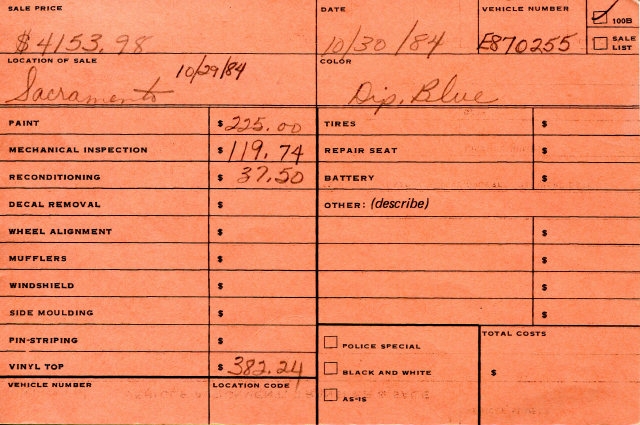 SALE PRICE DATE VEHICLE NUMBER ✓ 100B
$4153.98 10/30/84 E870255 SALE LIST
LOCATION OF SALE 10/29/84 COLOR
Sacramento Dip. Blue
PAINT $ 225.00 TIRES $
MECHANICAL INSPECTION $ 119.74 REPAIR SEAT $
RECONDITIONING $ 37.50 BATTERY $
DECAL REMOVAL $ OTHER: (describe)
WHEEL ALIGNMENT $ $
MUFFLERS $ $
WINDSHIELD $ $
SIDE MOULDING $ $
PIN-STRIPING $ POLICE SPECIAL TOTAL COSTS
VINYL TOP $ 382.24 BLACK AND WHITE $
VEHICLE NUMBER LOCATION CODE AS-IS